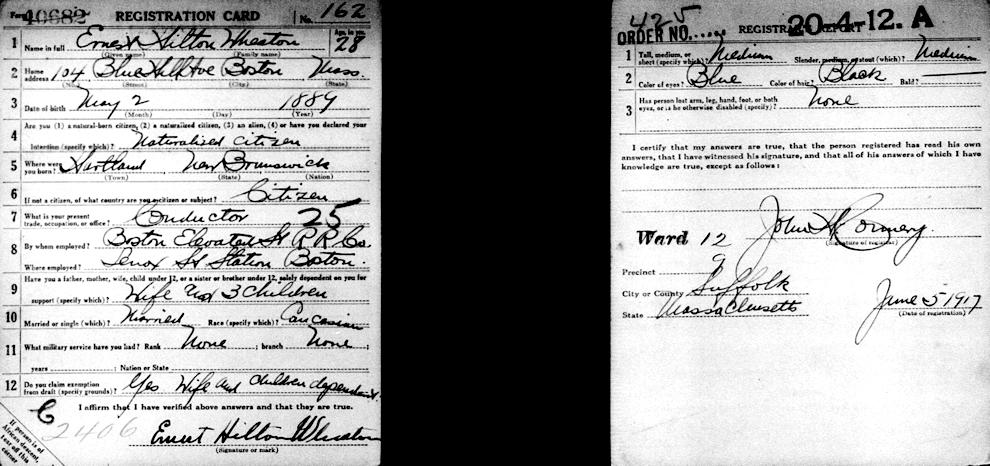 Form 40682 REGISTRATION CARD No. 162
1 Name in full Ernest Hilton Wheaton Age, in yrs. 28
(Given name) (Family name)
2 Home address 104 Blue Hill Ave Boston Mass.
(No.) (Street) (City) (State)
3 Date of birth May 2 1889
(Month) (Day) (Year)
4 Are you (1) a natural-born citizen, (2) a naturalized citizen, (3) an alien, (4) or have you declared your
intention (specify which)? Naturalized Citizen
5 Where were you born? Hartland New Brunswick
(Town) (State) (Nation)
6 If not a citizen, of what country are you a citizen or subject? Citizen
7 What is your present trade, occupation, or office? Conductor 25
8 By whom employed? Boston Elevated St R R Co.
Where employed? Lenox St Station Boston.
9 Have you a father, mother, wife, child under 12, or a sister or brother under 12, solely dependent on you for
support (specify which)? Wife and 3 Children
10 Married or single (which)? Married Race (specify which)? Caucasian
11 What military service have you had? Rank None ; branch None ;
years ; Nation or State
12 Do you claim exemption from draft (specify grounds)? Yes Wife and children dependent.
I affirm that I have verified above answers and that they are true.
C 2406
Ernest Hilton Wheaton
(Signature or mark)
If person is of African descent, tear off this corner
425 20-4-12. A
ORDER NO. REGISTRAR'S REPORT
1 Tall, medium, or short (specify which)? Medium Slender, medium, or stout (which)? Medium
2 Color of eyes? Blue Color of hair? Black Bald?
3 Has person lost arm, leg, hand, foot, or both
eyes, or is he otherwise disabled (specify)? None
I certify that my answers are true, that the person registered has read his own
answers, that I have witnessed his signature, and that all of his answers of which I have
knowledge are true, except as follows:
John H
(Signature of registrar)
Ward 12
Precinct 9
City or County Suffolk
State Massachusetts
June 5 1917
(Date of registration)